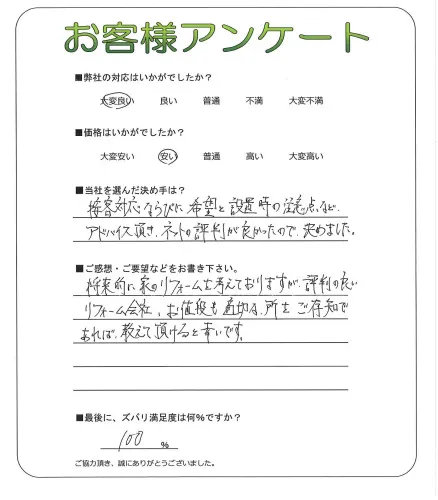 お客様アンケート
■弊社の対応はいかがでしたか?
大変良い 良い 普通 不満 大変不満
■価格はいかがでしたか?
大変安い 安い 普通 高い 大変高い
■当社を選んだ決め手は?
接客対応ならびに希望と設置時の注意点など
アドバイス頂き、ネットの評判が良かったので、決めました。
■ご感想・ご要望などをお書き下さい。
将来的に家のリフォームを考えておりますが、評判の良い
リフォーム会社、お値段も適切な所をご存知で
あれば、教えて頂けると幸いです。
■最後に、ズバリ満足度は何%ですか?
100 %
ご協力頂き、誠にありがとうございました。